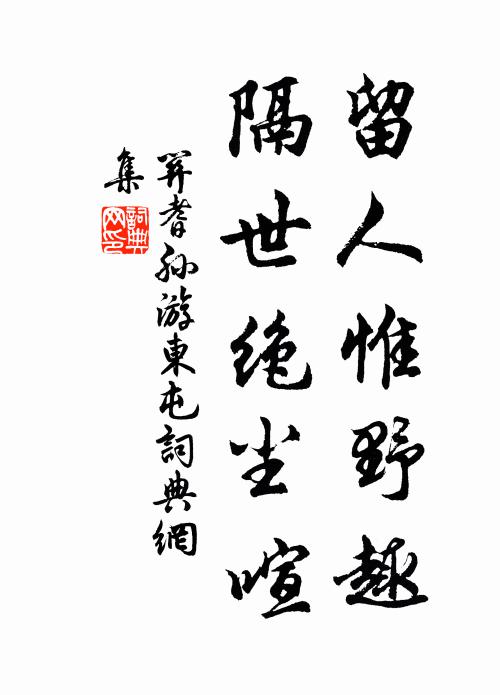 留人惟野趣
隔世绝尘喧
關耆孙游東屯詞典網
集
詞典
网印